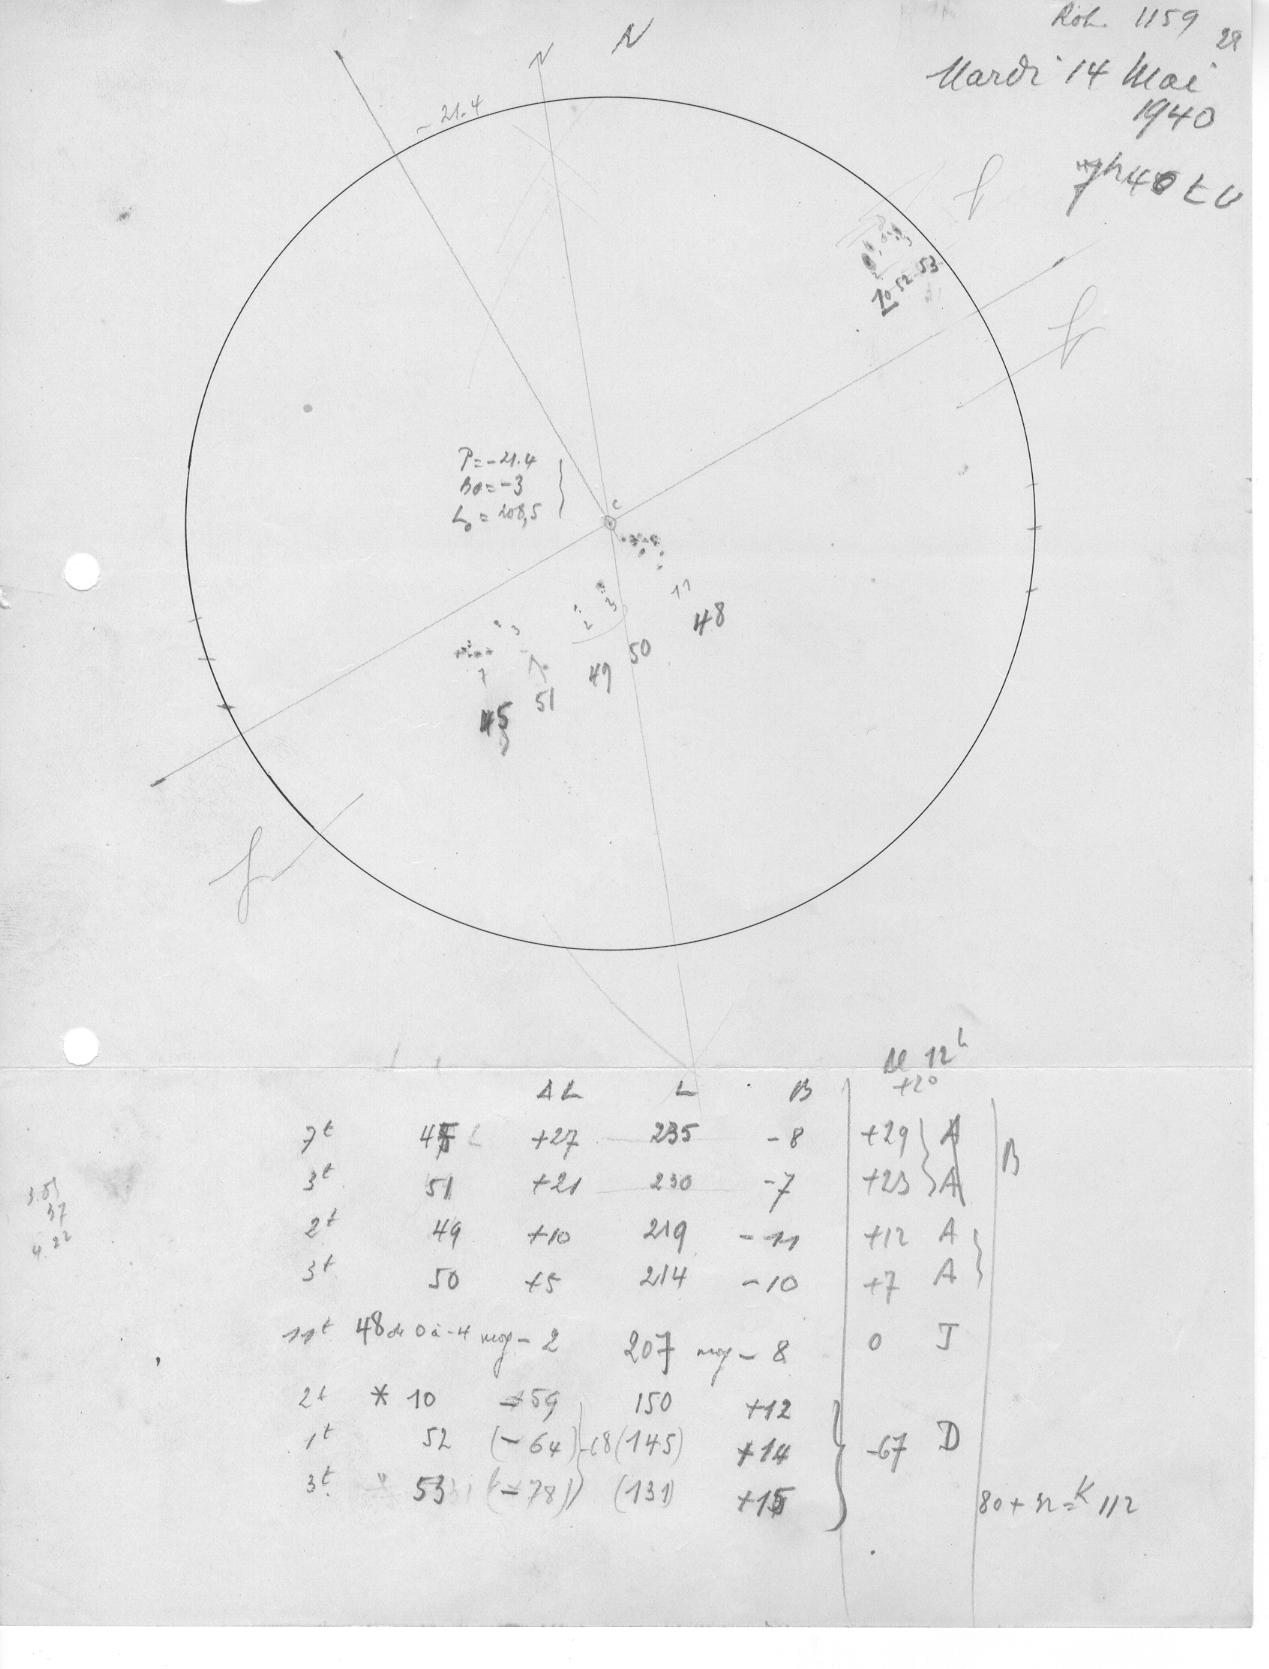 Rot. 1159
28
Mardi 14 Mai
1940
7h40 t U
N
N
-21.4
f
10-52-53
f
P=-21.4
B0=-3
L0=208,5
c
11
48
3
2
50
49
3
7
51
45
f
12h
+20
ΔL L B
7t 45 +27 235 -8 +29 A
3t 51 +21 230 -7 +23 A
B
2t 49 +10 219 -11 +12 A
3t 50 +5 214 -10 +7 A
11t 48 de 0 à -4 moy -2 207 moy -8 0 J
2t * 10 -59 150 +12
1t 52 (-64) -68 (145) +14 -67 D
3t 53 (-78) (131) +15
80+32=K 112
37
4.22